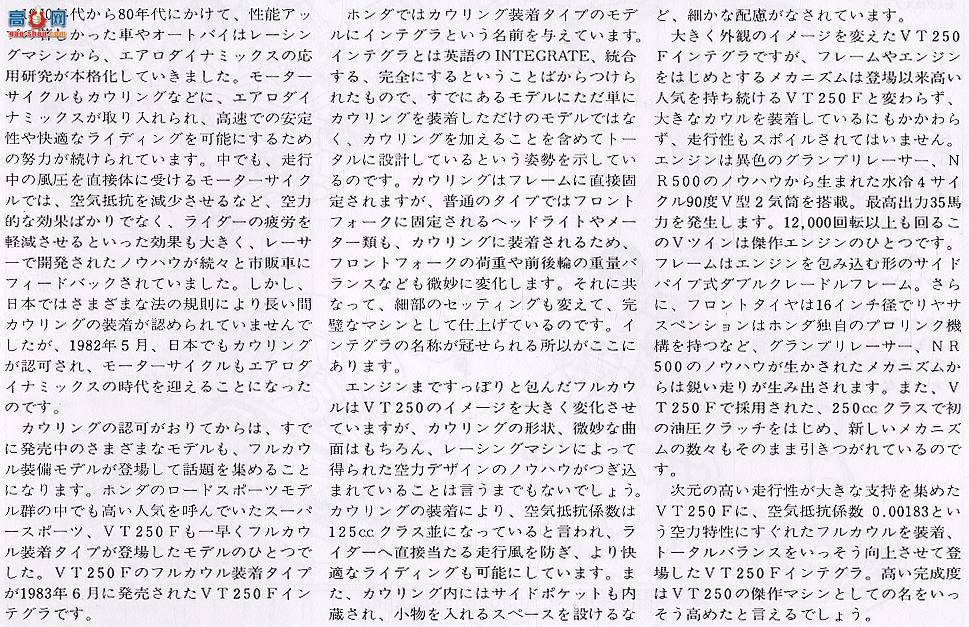 高手网
gao-shou.com
年代から80年代にかけて、性能アッ
かった車やオートバイはレーシン
グマシンから、エアロダイナミックスの応
用研究が本格化していきました。モーター
サイクルもカウリングなどに、エアロダイ
ナミックスが取り入れられ、高速での安定
性や快適なライディングを可能にするため
の努力が続けられています。中でも、走行
中の風圧を直接体に受けるモーターサイク
ルでは、空気抵抗を減少させるなど、空力
的な効果ばかりでなく、ライダーの疲労を
軽減させるといった効果も大きく、レーサ
ーで開発されたノウハウが続々と市販車に
フィードバックされていました。しかし、
日本ではさまざまな法の規則により長い間
カウリングの装着が認められていませんで
したが、1982年5月、日本でもカウリング
が認可され、モーターサイクルもエアロダ
イナミックスの時代を迎えることになった
のです。
カウリングの認可がおりてからは、すで
に発売中のさまざまなモデルも、フルカウ
ル装備モデルが登場して話題を集めること
になります。ホンダのロードスポーツモデ
ル群の中でも高い人気を呼んでいたスーパ
ースポーツ、VT250Fも一早くフルカウ
ル装着タイプが登場したモデルのひとつで
した。VT250Fのフルカウル装着タイプ
が1983年6月に発売されたVT250Fイン
テグラです。
ホンダではカウリング装着タイプのモデ
ルにインテグラという名前を与えています。
インテグラとは英語のINTEGRATE、統合
する、完全にするということばからつけら
れたもので、すでにあるモデルにただ単に
カウリングを装着しただけのモデルではな
く、カウリングを加えることを含めてトー
タルに設計しているという姿勢を示してい
るのです。カウリングはフレームに直接固
定されますが、普通のタイプではフロント
フォークに固定されるヘッドライトやメー
ター類も、カウリングに装着されるため、
フロントフォークの荷重や前後輪の重量バ
ランスなども微妙に変化します。それに共
なって、細部のセッティングも変えて、完
璧なマシンとして仕上げているのです。イ
ンテグラの名称が冠せられる所以がここに
あります。
エンジンまですっぽりと包んだフルカウ
ルはVT250のイメージを大きく変化させ
ていますが、カウリングの形状、微妙な曲
面はもちろん、レーシングマシンによって
得られた空力デザインのノウハウがつぎ込
まれていることは言うまでもないでしょう。
カウリングの装着により、空気抵抗係数は
125ccクラス並になっていると言われ、ラ
イダーへ直接当たる走行風を防ぎ、より快
適なライディングも可能にしています。ま
た、カウリング内にはサイドポケットも内
蔵され、小物を入れるスペースを設けるな
ど、細かな配慮がなされています。
大きく外観のイメージを変えたVT250
Fインテグラですが、フレームやエンジン
をはじめとするメカニズムは登場以来高い
人気を持ち続けるVT250Fと変わらず、
大きなカウルを装着しているにもかかわら
ず、走行性もスポイルされてはいません。
エンジンは異色のグランプリレーサー、N
R500のノウハウから生まれた水冷4サイ
クル90度V型2気筒を搭載。最高出力35馬
力を発生します。12,000回転以上も回るこ
のVツインは傑作エンジンのひとつです。
フレームはエンジンを包み込む形のサイド
パイプ式ダブルクレードルフレーム。さら
に、フロントタイヤは16インチ径でリヤサ
スペンションはホンダ独自のプロリンク機
構を持つなど、グランプリレーサー、NR
500のノウハウが生かされたメカニズムか
らは鋭い走りが生み出されます。また、V
T250Fで採用された、250ccクラスで初
の油圧クラッチをはじめ、新しいメカニズ
ムの数々もそのまま引きつがれているので
す。
次元の高い走行性が大きな支持を集めた
VT250Fに、空気抵抗係数 0.00183とい
う空力特性にすぐれたフルカウルを装着、
トータルバランスをいっそう向上させて登
場したVT250Fインテグラ。高い完成度
はVT250の傑作マシンとしての名をいっ
そう高めたと言えるでしょう。